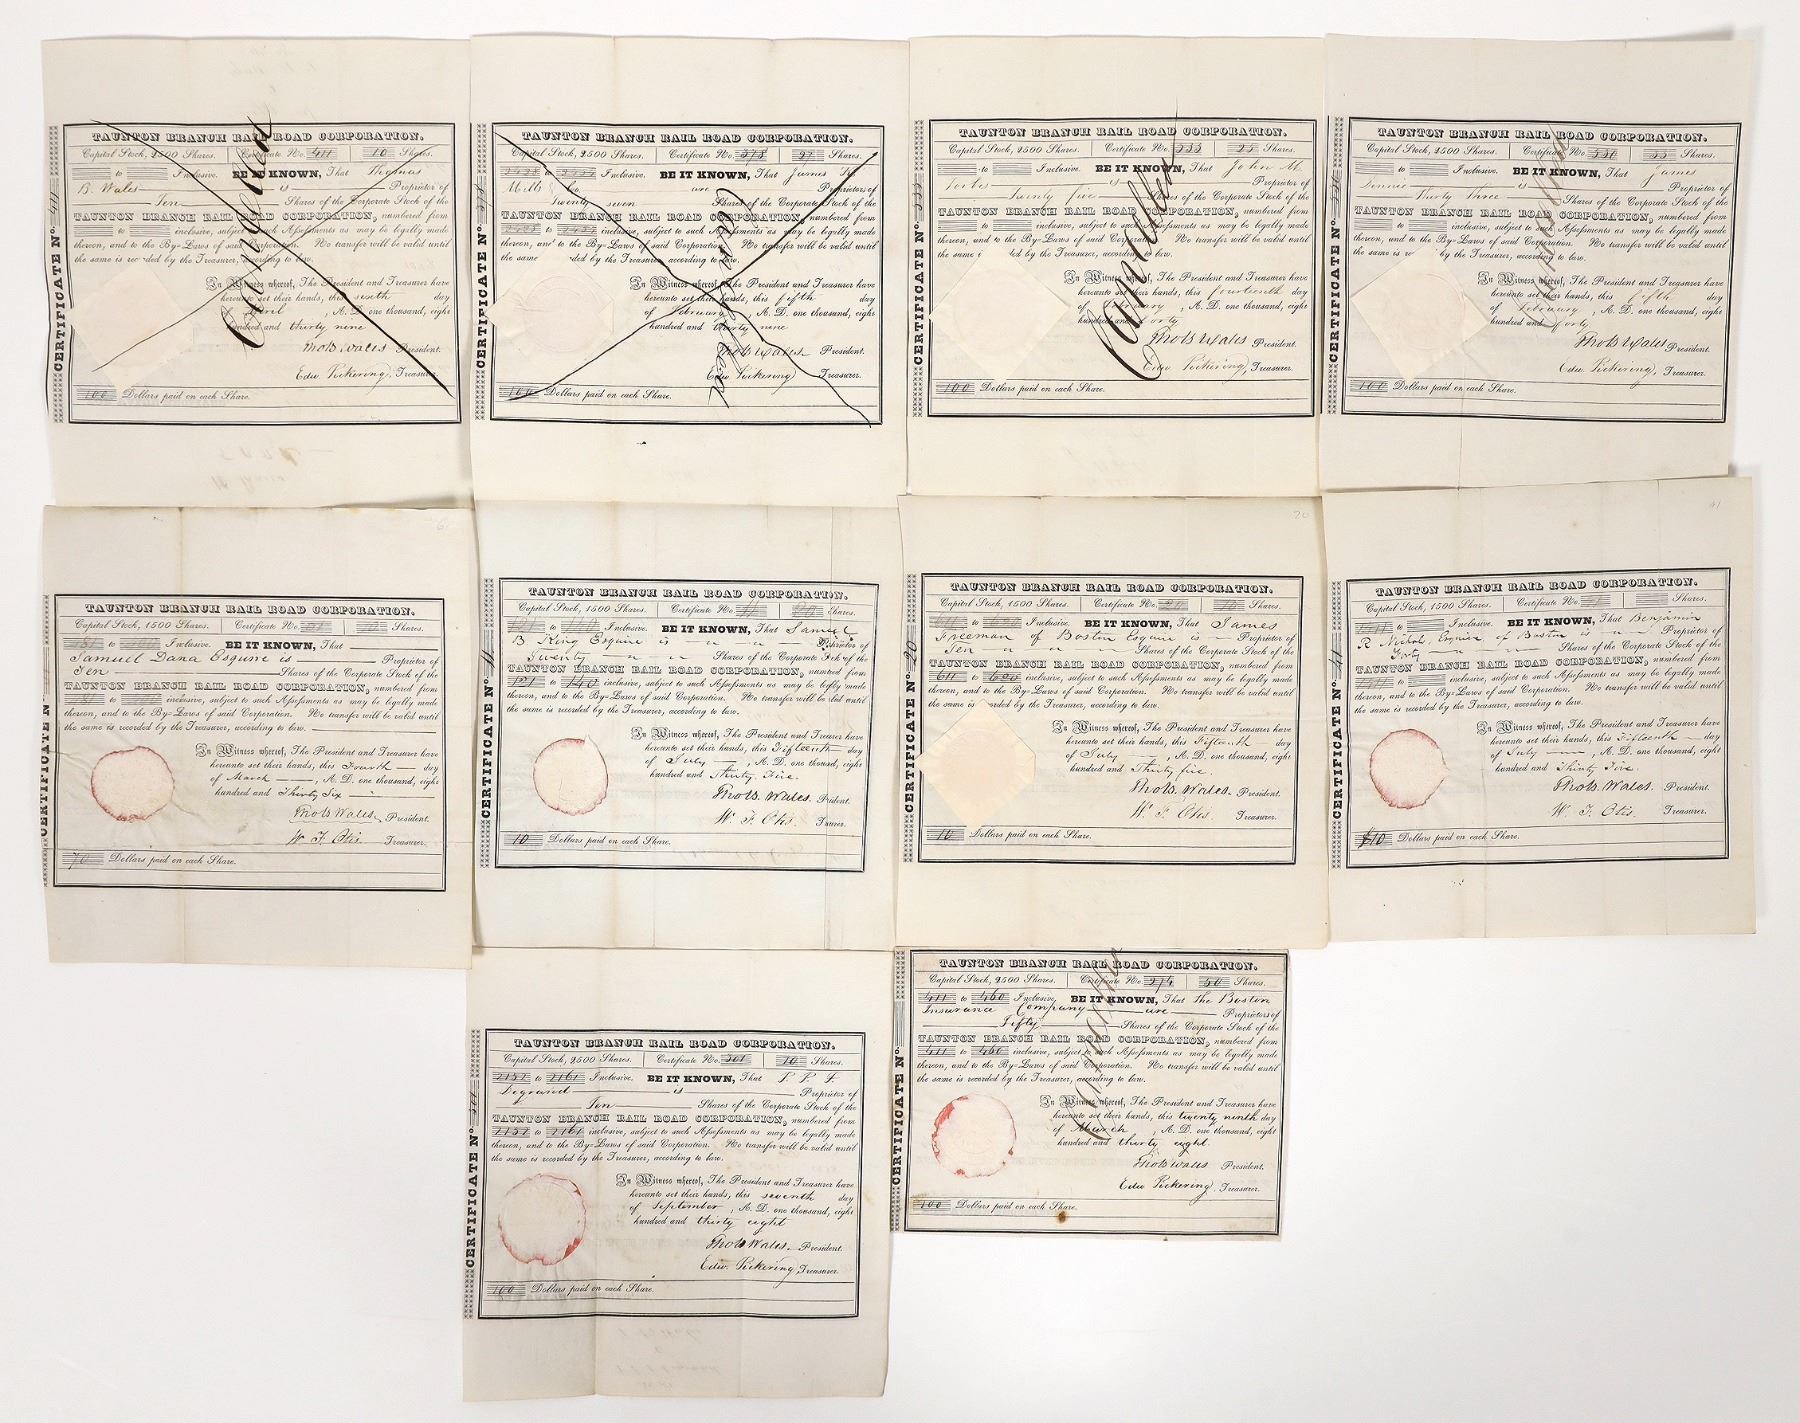 TAUNTON BRANCH RAIL ROAD CORPORATION.
Capital Stock, 2500 Shares. Certificate No. 411 10 Shares.
to Inclusive. BE IT KNOWN, That Thomas
B. Wales is Proprietor of
Ten Shares of the Corporate Stock of the
TAUNTON BRANCH RAIL ROAD CORPORATION, numbered from
to inclusive, subject to such Assessments as may be legally made
thereon, and to the By-Laws of said Corporation. No transfer will be valid until
the same is recorded by the Treasurer, according to law.
In Witness whereof, The President and Treasurer have
hereunto set their hands, this day
of April, A. D. one thousand, eight
hundred and thirty nine
Thos B Wales President.
Edw. Pickering, Treasurer.
100 Dollars paid on each Share.
CERTIFICATE No.
Cancelled
TAUNTON BRANCH RAIL ROAD CORPORATION.
Capital Stock, 2500 Shares. Certificate No. 27 Shares.
to Inclusive. BE IT KNOWN, That James
Mills & Co. are Proprietors of
Twenty seven Shares of the Corporate Stock of the
TAUNTON BRANCH RAIL ROAD CORPORATION, numbered from
to inclusive, subject to such Assessments as may be legally made
thereon, and to the By-Laws of said Corporation. No transfer will be valid until
the same ded by the Treasurer, according to law.
In Witness whereof, The President and Treasurer have
hereunto set their hands, this fifth day
of February, A. D. one thousand, eight
hundred and thirty nine
Thos B Wales President.
Edw Pickering Treasurer.
100 Dollars paid on each Share.
CERTIFICATE No.
Cancelled
TAUNTON BRANCH RAIL ROAD CORPORATION.
Capital Stock, 2500 Shares. Certificate No. 25 Shares.
to Inclusive. BE IT KNOWN, That John M.
Forbes is Proprietor of
Twenty five Shares of the Corporate Stock of the
TAUNTON BRANCH RAIL ROAD CORPORATION, numbered from
to inclusive, subject to such Assessments as may be legally made
thereon, and to the By-Laws of said Corporation. No transfer will be valid until
the same i ded by the Treasurer, according to law.
In Witness whereof, The President and Treasurer have
hereunto set their hands, this fourteenth day
A. D. one thousand, eight
hundred and forty
Thos B Wales President.
Edw Pickering, Treasurer.
100 Dollars paid on each Share.
CERTIFICATE No.
Cancelled
TAUNTON BRANCH RAIL ROAD CORPORATION.
Capital Stock, 2500 Shares. Certificate No. Shares.
to Inclusive. BE IT KNOWN, That James
Dennie is Proprietor of
Thirty Three Shares of the Corporate Stock of the
TAUNTON BRANCH RAIL ROAD CORPORATION, numbered from
to inclusive, subject to such Assessments as may be legally made
thereon, and to the By-Laws of said Corporation. No transfer will be valid until
the same is re by the Treasurer, according to law.
In Witness whereof, The President and Treasurer have
hereunto set their hands, this fifth day
of February, A. D. one thousand, eight
hundred and forty
Thos B Wales President.
Edw Pickering, Treasurer.
100 Dollars paid on each Share.
CERTIFICATE No.
Cancelled
TAUNTON BRANCH RAIL ROAD CORPORATION.
Capital Stock, 1500 Shares. Certificate No. Shares.
to Inclusive. BE IT KNOWN, That
Samuel Dana Esquire is Proprietor of
Ten Shares of the Corporate Stock of the
TAUNTON BRANCH RAIL ROAD CORPORATION, numbered from
to inclusive, subject to such Assessments as may be legally made
thereon, and to the By-Laws of said Corporation. No transfer will be valid until
the same is recorded by the Treasurer, according to law.
In Witness whereof, The President and Treasurer have
hereunto set their hands, this Fourth day
of March, A. D. one thousand, eight
hundred and Thirty Six
Thos B Wales President.
W. F. Otis Treasurer.
70 Dollars paid on each Share.
CERTIFICATE No.
TAUNTON BRANCH RAIL ROAD CORPORATION.
Capital Stock, 1500 Shares. Certificate No. 11 20 Shares.
121 to 140 Inclusive. BE IT KNOWN, That Samuel
B King Esquire is Proprietor of
Twenty Shares of the Corporate Stock of the
TAUNTON BRANCH RAIL ROAD CORPORATION, numbered from
121 to 140 inclusive, subject to such Assessments as may be legally made
thereon, and to the By-Laws of said Corporation. No transfer will be valid until
the same is recorded by the Treasurer, according to law.
In Witness whereof, The President and Treasurer have
hereunto set their hands, this Fifteenth day
of July, A. D. one thousand, eight
hundred and Thirty Five
Thos B. Wales. President.
W. F. Otis. Treasurer.
10 Dollars paid on each Share.
CERTIFICATE No. 11
20
TAUNTON BRANCH RAIL ROAD CORPORATION.
Capital Stock, 1500 Shares. Certificate No. 20 10 Shares.
611 to 620 Inclusive. BE IT KNOWN, That James
Freeman of Boston Esquire is Proprietor of
Ten Shares of the Corporate Stock of the
TAUNTON BRANCH RAIL ROAD CORPORATION, numbered from
611 to 620 inclusive, subject to such Assessments as may be legally made
thereon, and to the By-Laws of said Corporation. No transfer will be valid until
the same is recorded by the Treasurer, according to law.
In Witness whereof, The President and Treasurer have
hereunto set their hands, this Fifteenth day
of July, A. D. one thousand, eight
hundred and Thirty five.
Thos B. Wales. President.
W. F. Otis. Treasurer.
10 Dollars paid on each Share.
CERTIFICATE No. 20
41
TAUNTON BRANCH RAIL ROAD CORPORATION.
Capital Stock, 1500 Shares. Certificate No. Shares.
to Inclusive. BE IT KNOWN, That Benjamin
R Nichols Esquire of Boston is Proprietor of
Forty Shares of the Corporate Stock of the
TAUNTON BRANCH RAIL ROAD CORPORATION, numbered from
to inclusive, subject to such Assessments as may be legally made
thereon, and to the By-Laws of said Corporation. No transfer will be valid until
the same is recorded by the Treasurer, according to law.
In Witness whereof, The President and Treasurer have
hereunto set their hands, this Fifteenth day
of July, A. D. one thousand, eight
hundred and Thirty Five.
Thos B. Wales. President.
W. F. Otis. Treasurer.
$10 Dollars paid on each Share.
CERTIFICATE No. 41
TAUNTON BRANCH RAIL ROAD CORPORATION.
Capital Stock, 2500 Shares. Certificate No. 301 10 Shares.
2152 to 2161 Inclusive. BE IT KNOWN, That P. P. F.
Degrand is Proprietor of
Ten Shares of the Corporate Stock of the
TAUNTON BRANCH RAIL ROAD CORPORATION, numbered from
2152 to 2161 inclusive, subject to such Assessments as may be legally made
thereon, and to the By-Laws of said Corporation. No transfer will be valid until
the same is recorded by the Treasurer, according to law.
In Witness whereof, The President and Treasurer have
hereunto set their hands, this seventh day
of September, A. D. one thousand, eight
hundred and thirty eight
Thos B Wales President.
Edw. Pickering, Treasurer.
100 Dollars paid on each Share.
CERTIFICATE No.
TAUNTON BRANCH RAIL ROAD CORPORATION.
Capital Stock, 2500 Shares. Certificate No. 274 50 Shares.
411 to 460 Inclusive. BE IT KNOWN, That The Boston
Insurance Company are Proprietors of
Fifty Shares of the Corporate Stock of the
TAUNTON BRANCH RAIL ROAD CORPORATION, numbered from
411 to 460 inclusive, subject to such Assessments as may be legally made
thereon, and to the By-Laws of said Corporation. No transfer will be valid until
the same is recorded by the Treasurer, according to law.
In Witness whereof, The President and Treasurer have
hereunto set their hands, this twenty ninth day
of March, A. D. one thousand, eight
hundred and thirty eight.
Thos B Wales President.
Edw Pickering. Treasurer.
100 Dollars paid on each Share.
CERTIFICATE No.
Cancelled